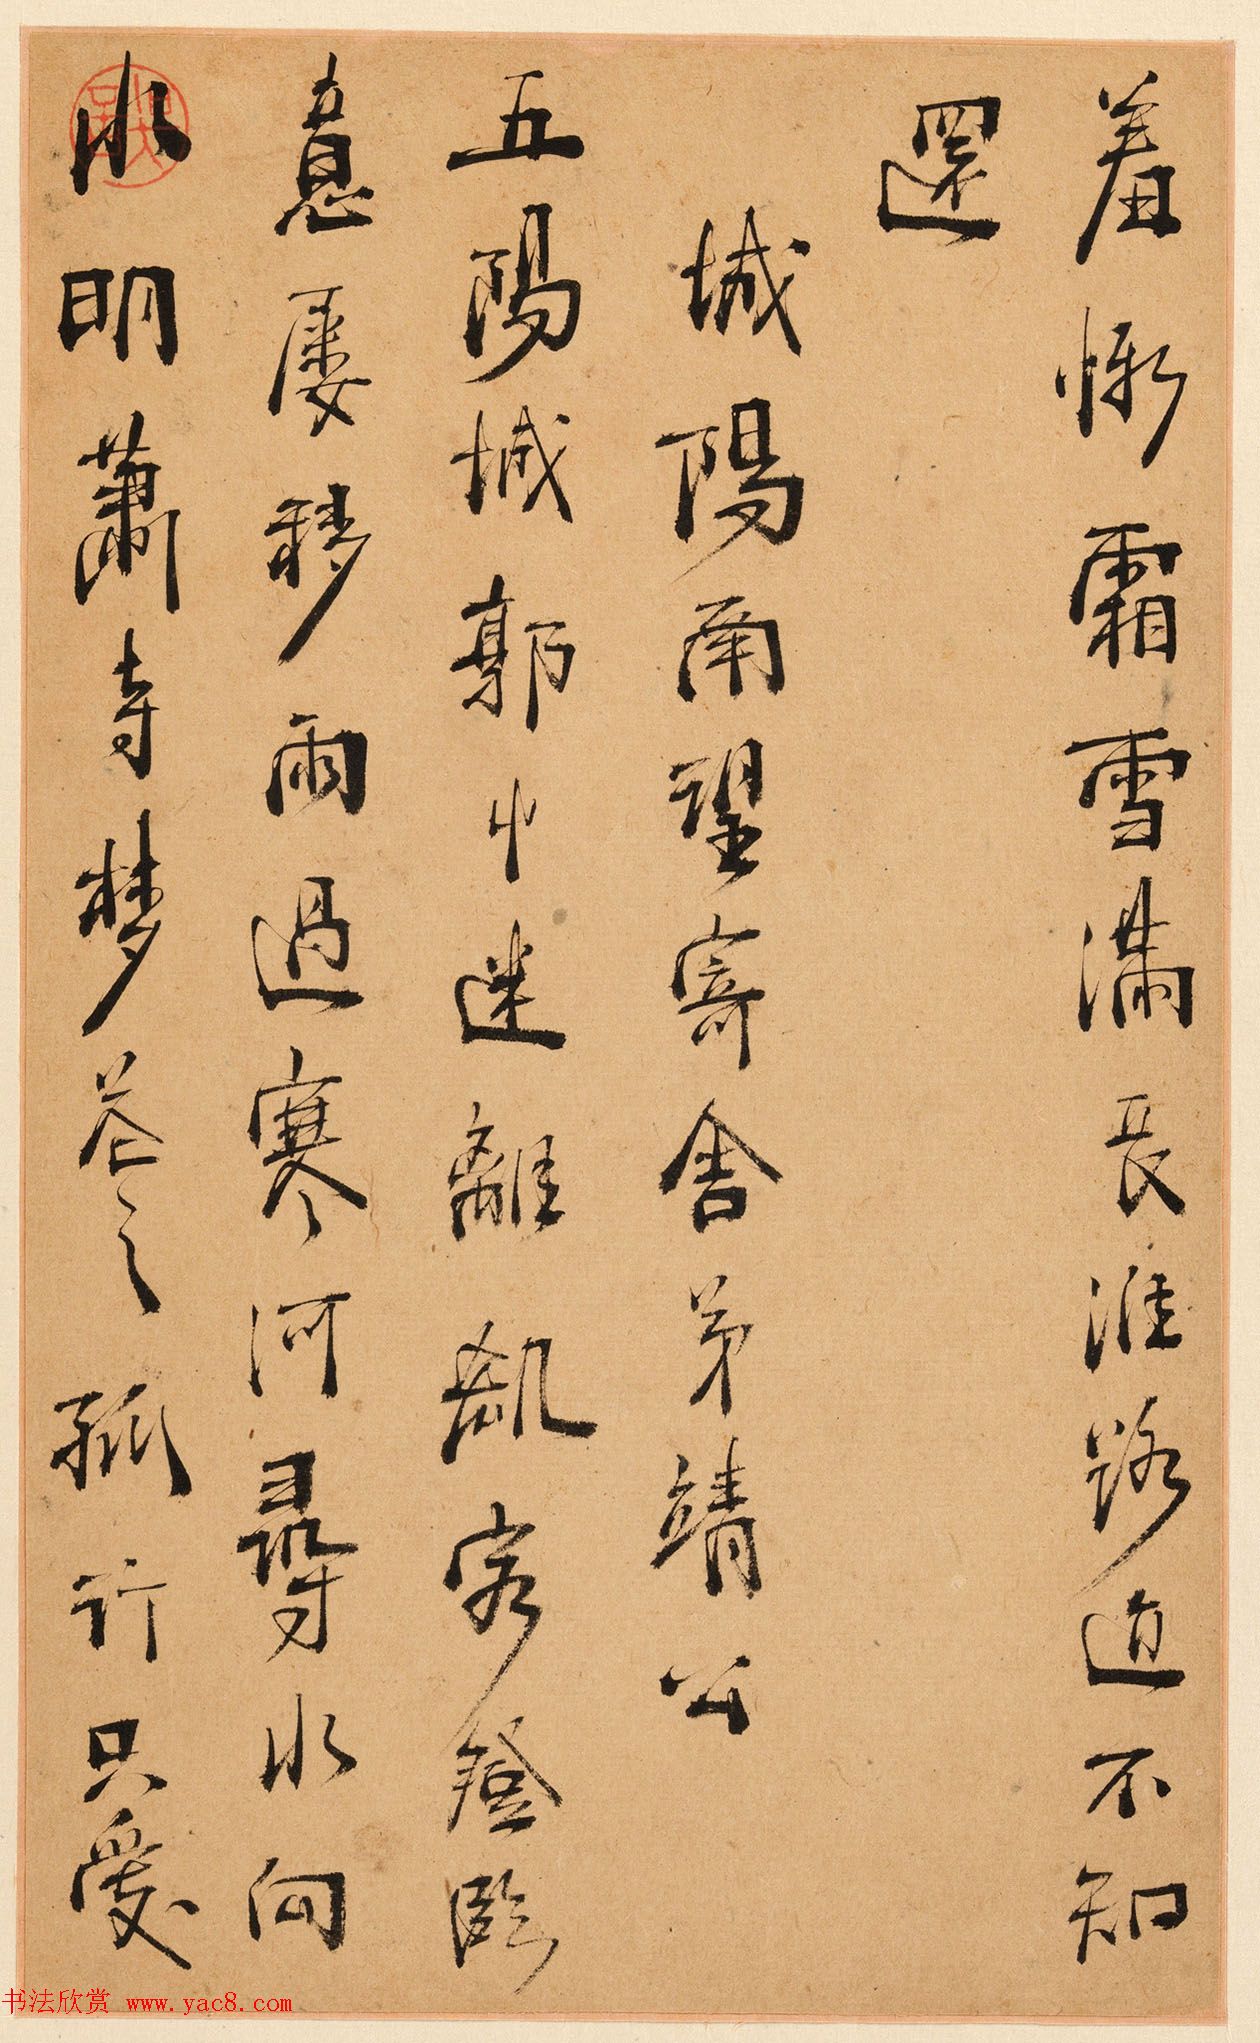 羞慚霜雪滿長淮路不知
還
城陽南望寄舍弟靖公
五陽城郭屮迷離客登臨
意屢移雨過寒河尋水向
水明蕭寺夢花之孤行只愛
书法欣赏 www.yac8.com